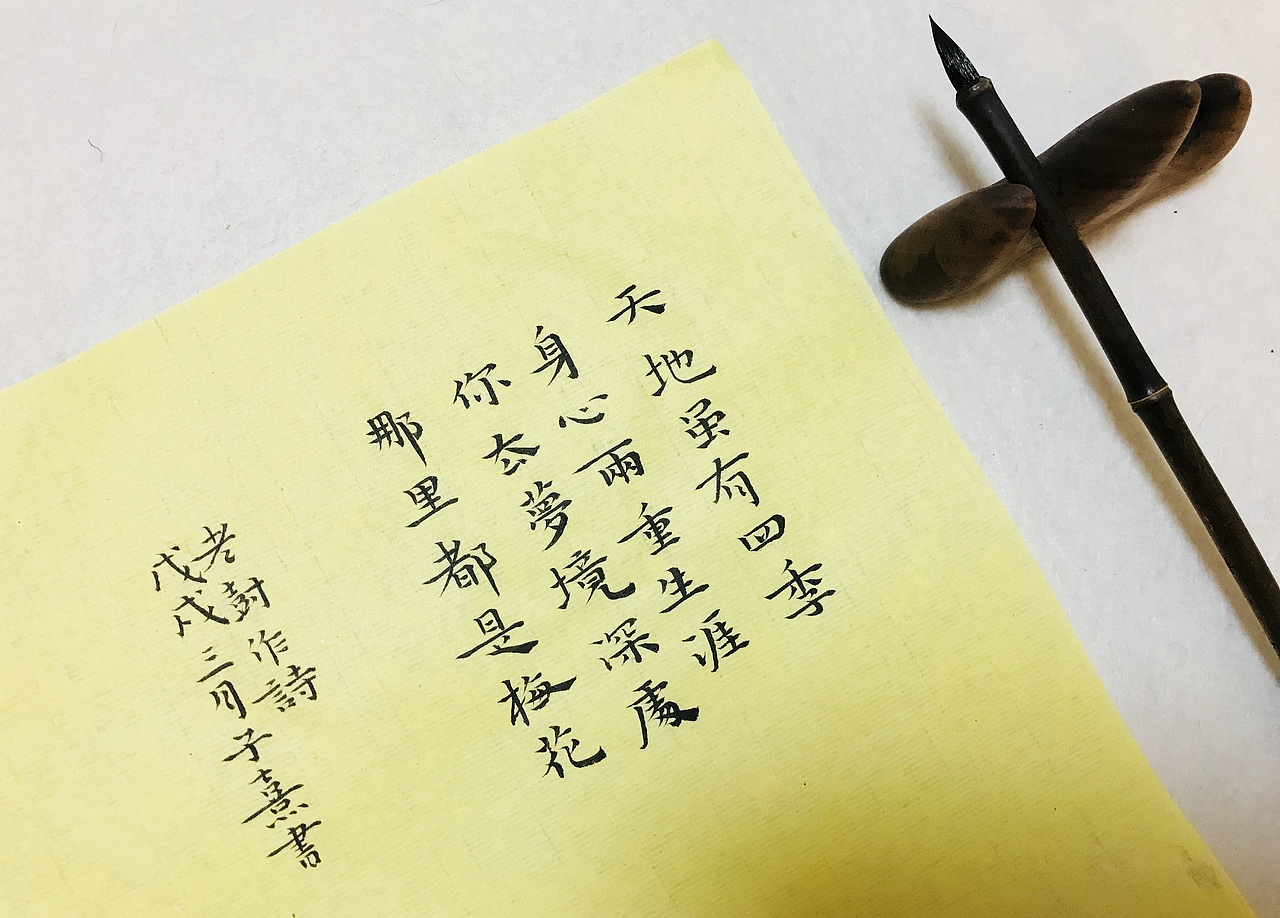 天地虽有四季
身心兩重生涯
你去夢境深處
那里都是梅花
老封作詩
戊戌三月子熹書